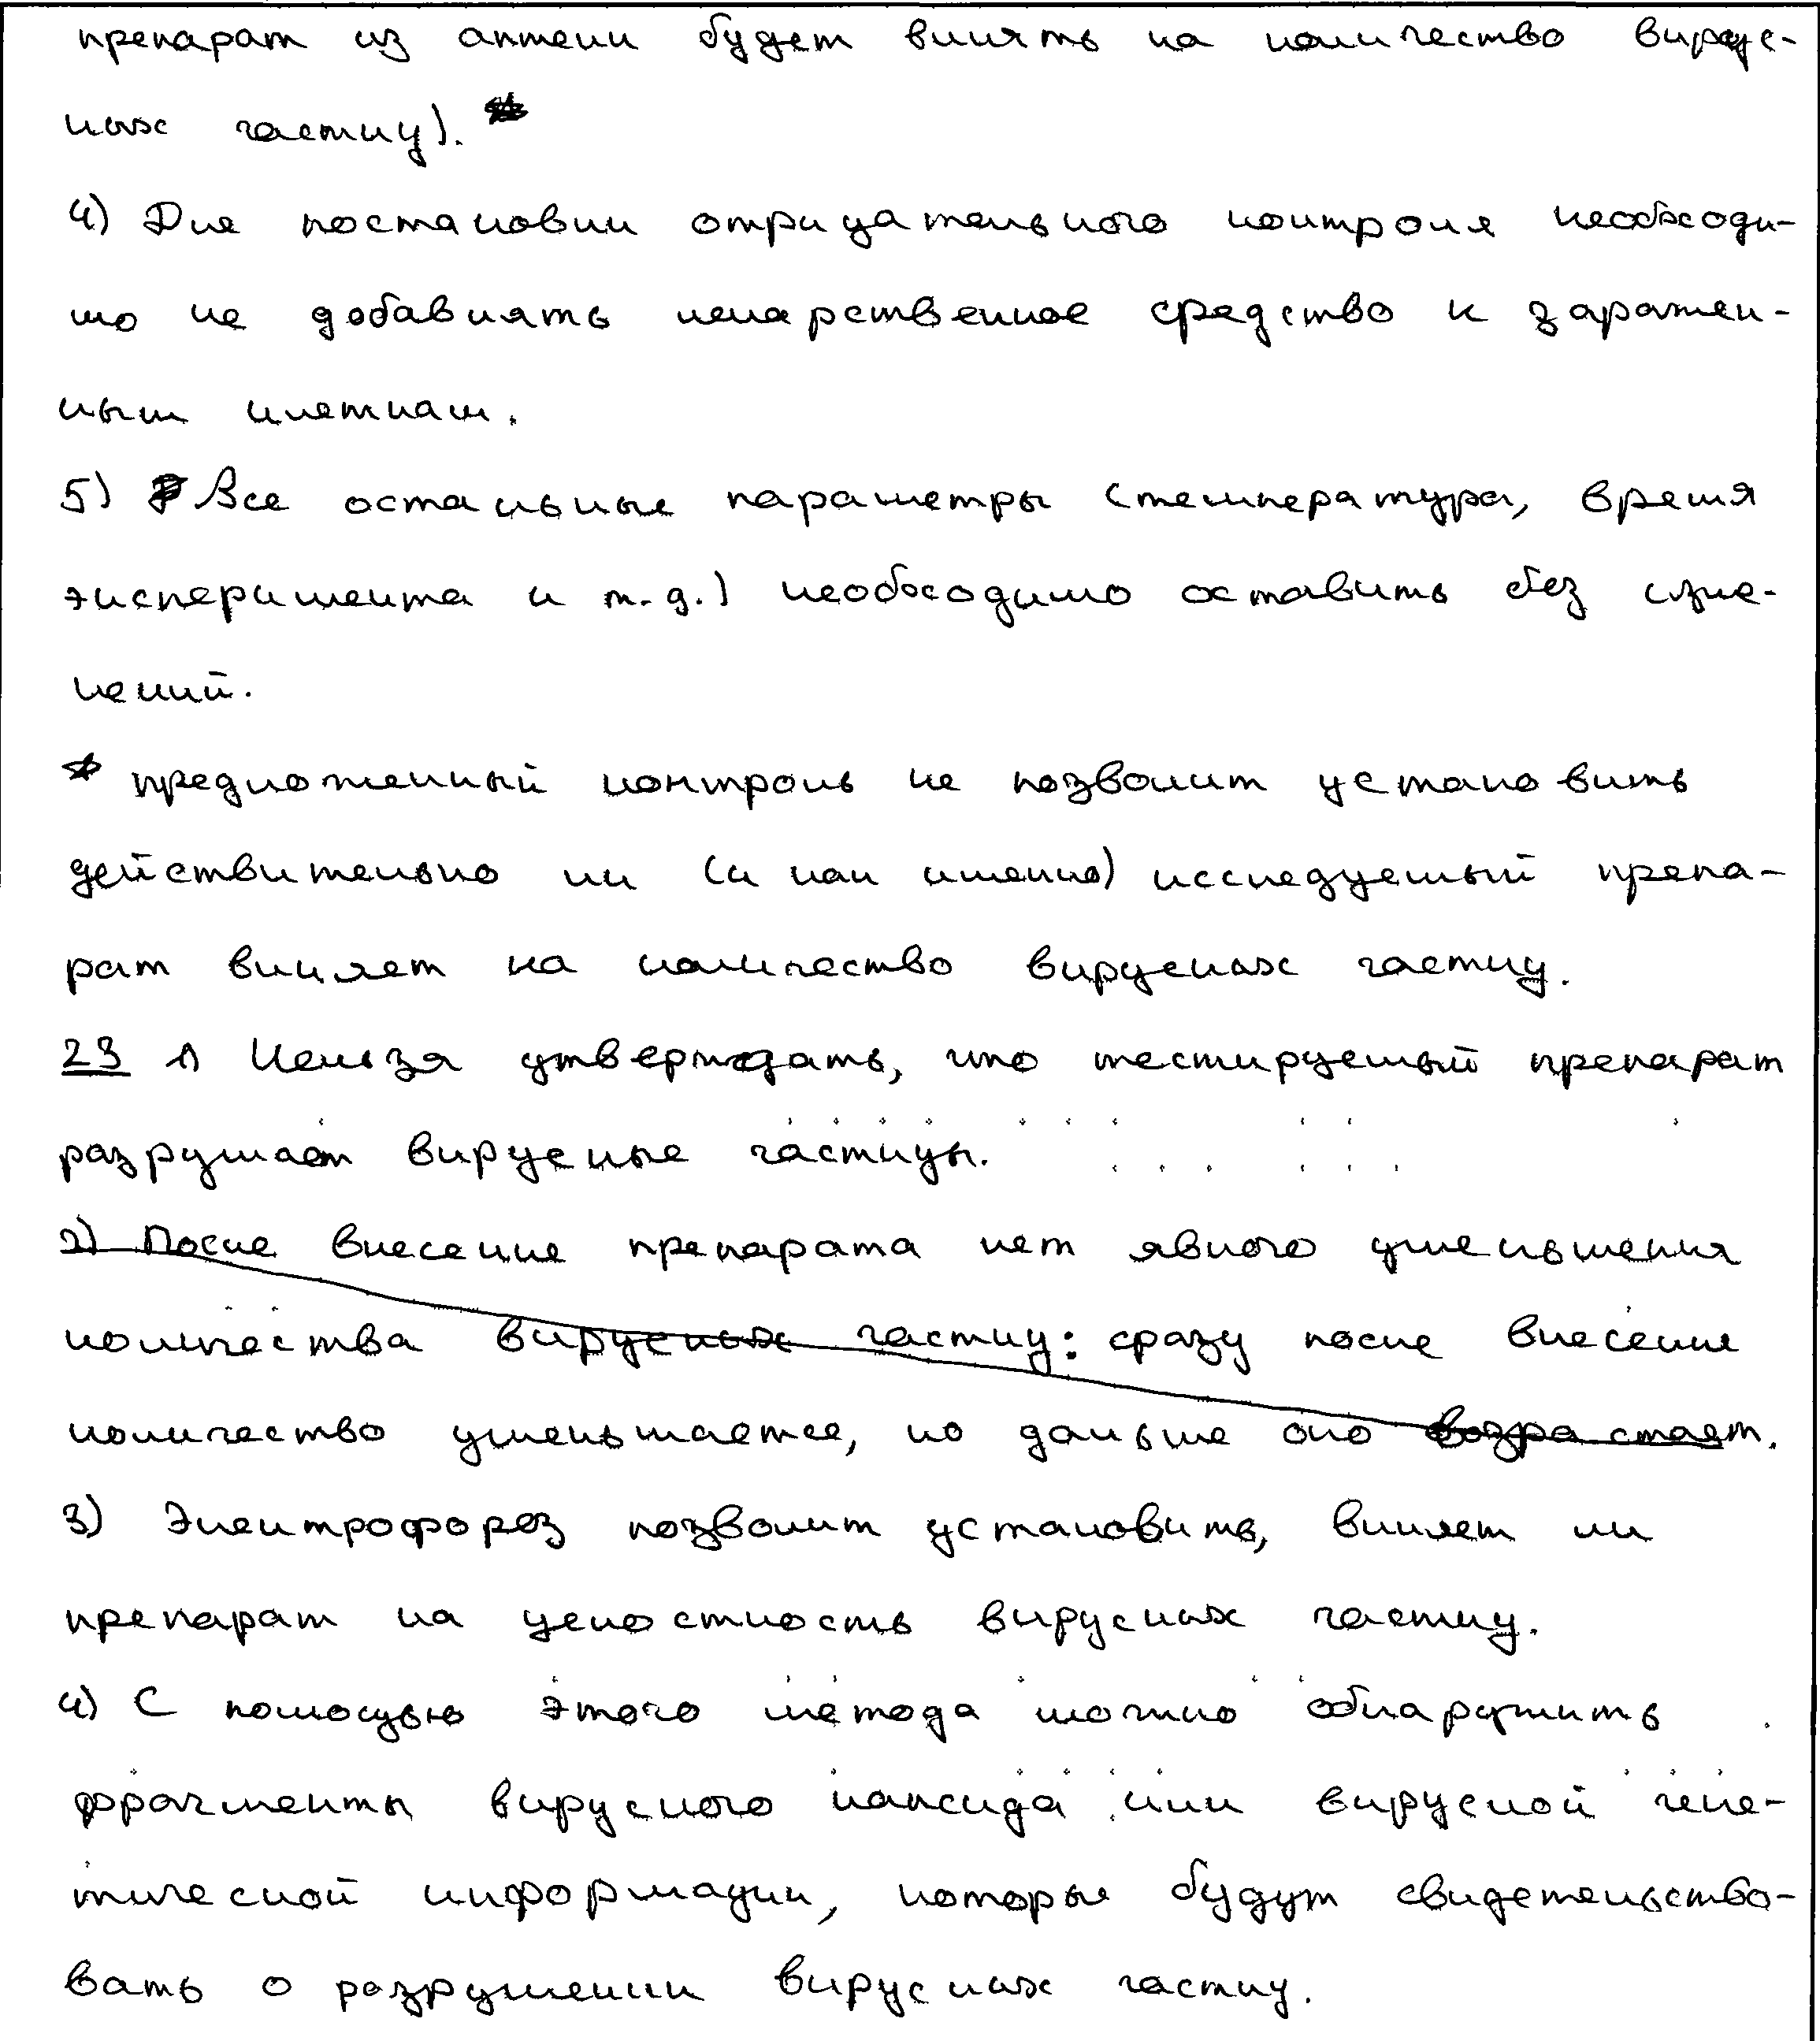 препарат из аптеки будет влиять на количество вирус-
ных частиц). *
4) Для постановки отрицательного контроля необходи-
мо не добавлять лекарственное средство к заражен-
ным клеткам.
5) Все остальные параметры (температура, время
эксперимента и т.д.) необходимо оставить без изме-
нений.
* предложенный контроль не позволит установить
действительно ли (и как именно) исследуемый препа-
рат влияет на количество вирусных частиц.
23 1) Нельзя утверждать, что тестируемый препарат
разрушает вирусные частицы.
2) После внесение препарата нет явного уменьшения
количества вирусных частиц: сразу после внесение
количество уменьшается, но дальше оно возрастает.
3) Электрофорез позволит установить, влияет ли
препарат на целостность вирусных частиц.
4) С помощью этого метода можно обнаружить
фрагменты вирусного капсида или вирусной гене-
тической информации, которые будут свидетельство-
вать о разрушении вирусных частиц.